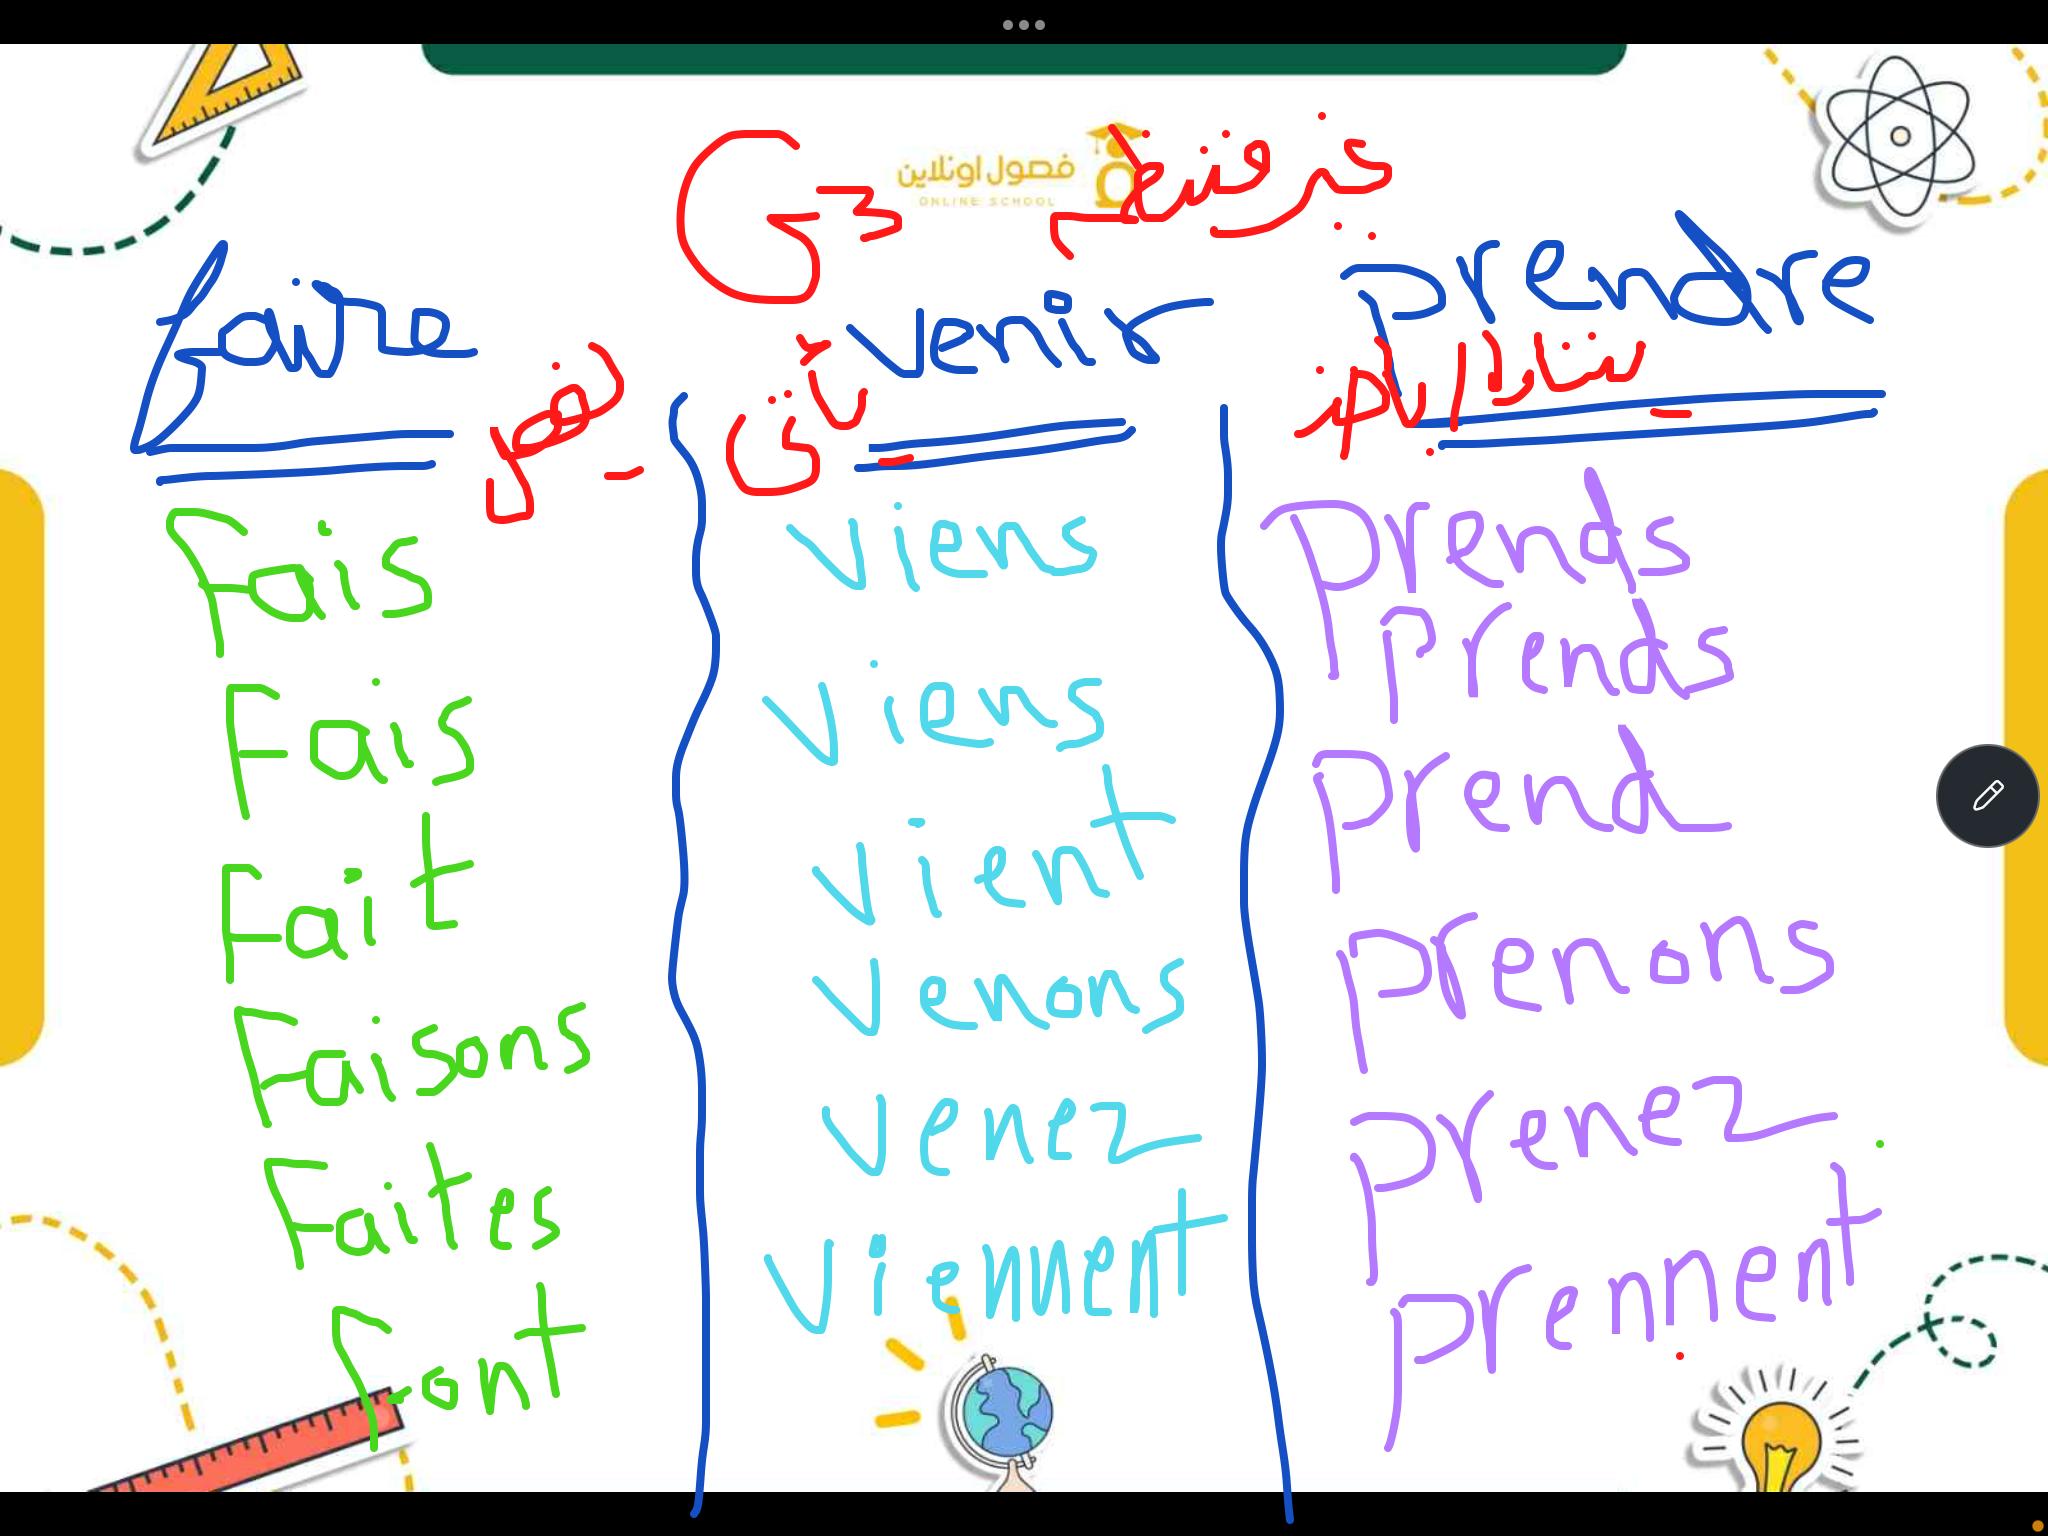 فصول اونلاين
ONLINE SCHOOL
G3 غير منتظم
faire يفعل
Fais
Fais
Fait
Faisons
Faites
Font
venir يأتى
Viens
Viens
Vient
Venons
Venez
Viennent
prendre يتناول / يأخذ
Prends
Prends
Prend
prenons
prenez
prennent